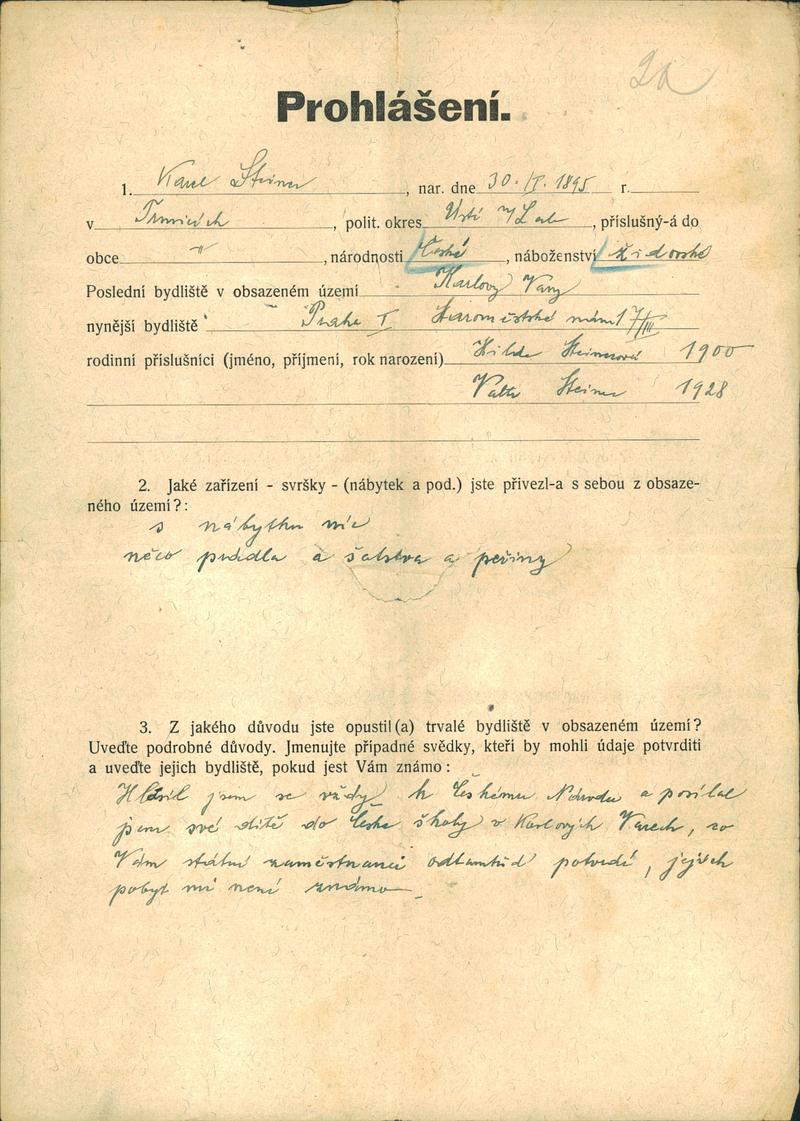 2a
Prohlášení.
1. Karel Steiner, nar. dne 30. IX. 1895 r.
v Trmicích, polit. okres Ústí n/Lab, příslušný-á do
obce ", národnosti české, náboženství židovské
Poslední bydliště v obsazeném území Karlovy Vary
nynější bydliště Praha I Staroměstské nám 17/III
rodinní příslušníci (jméno, příjmení, rok narození) Hilda Steinerová 1900
Valtr Steiner 1928
2. Jaké zařízení - svršky - (nábytek a pod.) jste přivezl-a s sebou z obsaze-
ného území?:
s nábytku nic
něco prádla a šatstva a peřiny
3. Z jakého důvodu jste opustil(a) trvalé bydliště v obsazeném území?
Uveďte podrobné důvody. Jmenujte případné svědky, kteří by mohli údaje potvrditi
a uveďte jejich bydliště, pokud jest Vám známo:
Hlásil jsem se vždy k českému Národu a posílal
jsem své dítě do české školy v Karlových Varech, co
Vám státní zaměstnanci odtamtud potvrdí, jejich
pobyt mi není známo.